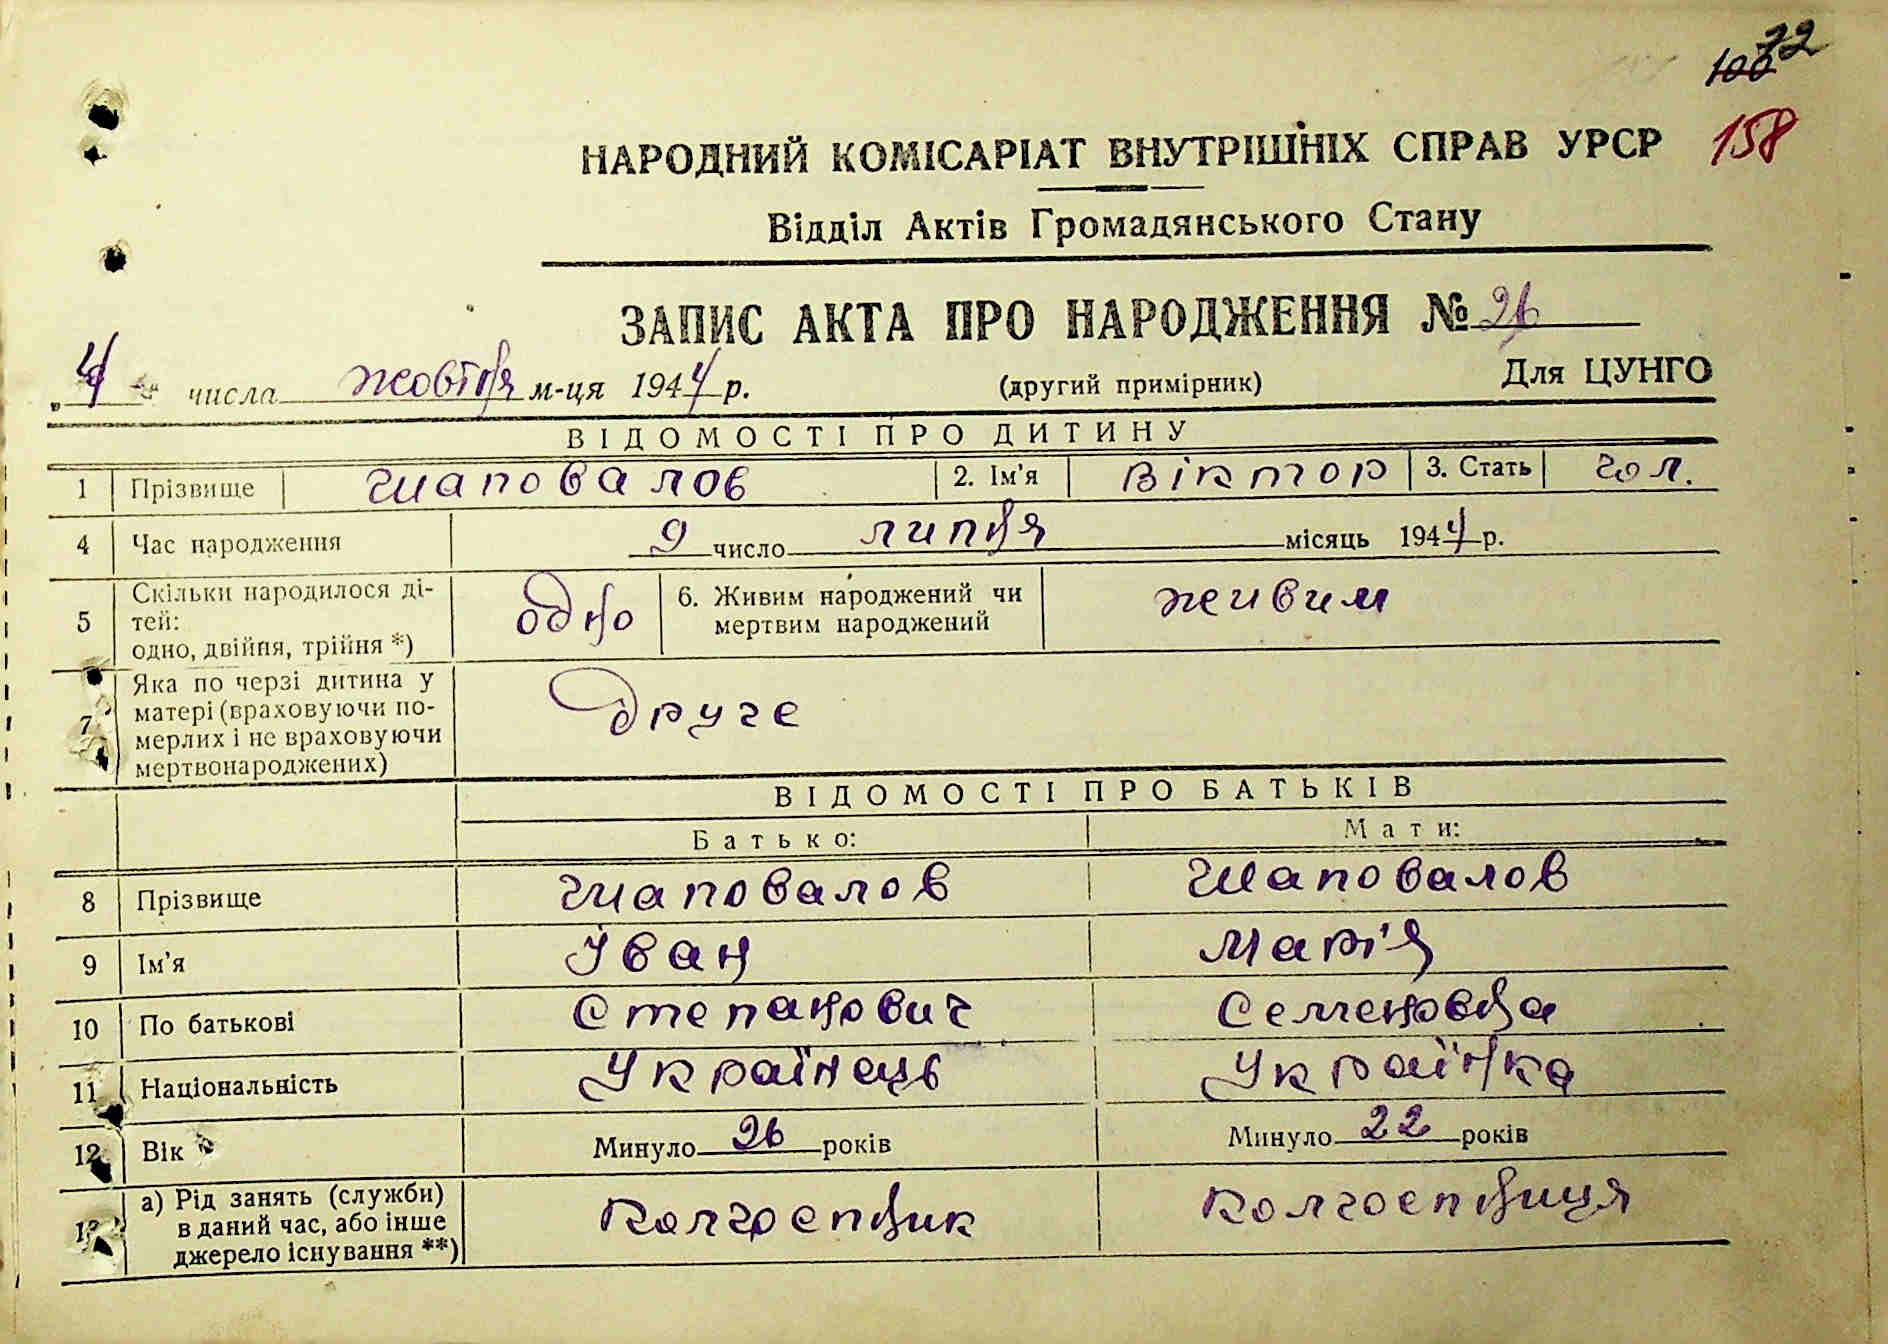 72
100
158
НАРОДНИЙ КОМІСАРІАТ ВНУТРІШНІХ СПРАВ УРСР
Відділ Актів Громадянського Стану
ЗАПИС АКТА ПРО НАРОДЖЕННЯ № 26
„4“ числа жовтня м-ця 1944 р. (другий примірник) Для ЦУНГО
ВІДОМОСТІ ПРО ДИТИНУ
1 Прізвище Шаповалов 2. Ім'я Віктор 3. Стать чол.
4 Час народження 9 число липня місяць 1944 р.
5 Скільки народилося ді-
тей:
одно, двійня, трійня *) одно 6. Живим народжений чи
мертвим народжений живим
7 Яка по черзі дитина у
матері (враховуючи по-
мерлих і не враховуючи
мертвонароджених) друге
ВІДОМОСТІ ПРО БАТЬКІВ
Батько: Мати:
8 Прізвище Шаповалов Шаповалов
9 Ім'я Іван Марія
10 По батькові Степанович Семеновна
11 Національність Українець Українка
12 Вік Минуло 26 років Минуло 22 років
13 а) Рід занять (служби)
в даний час, або інше
джерело існування **) Колгоспник Колгоспниця